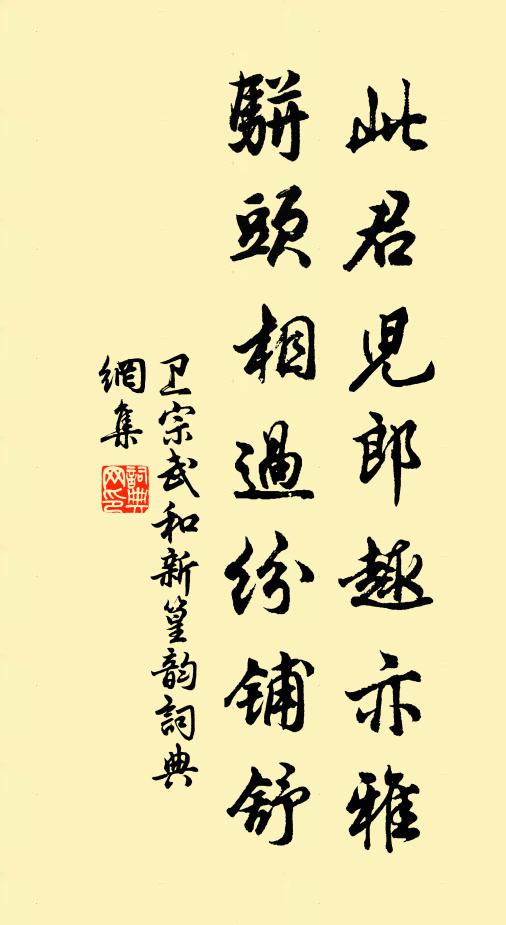 此君児郎趣亦雅
駢頭相過紛鋪舒
卫宗武和新篁韵詞典
網集
詞典
网印